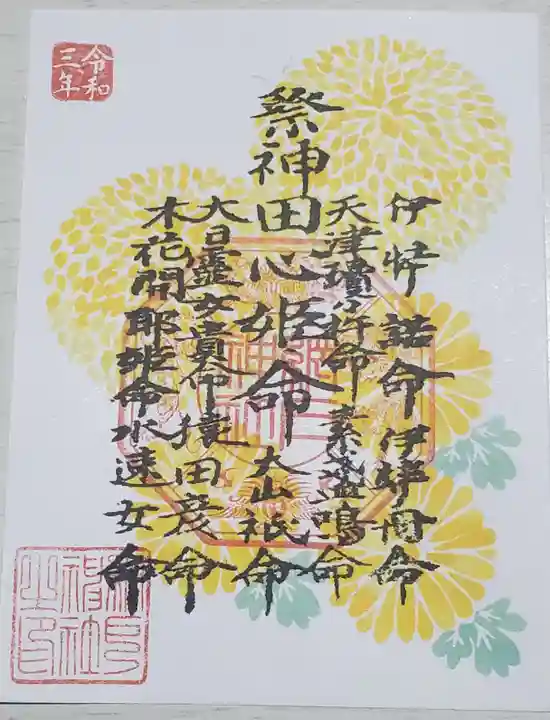 伊弉諾命 伊弉冊命
天津瓊々杵命 素盞鳴命
祭神田心姫命 大山祇命
大日孁女貴命 猿田彦命
木花開耶姫命 水速女命
令和
三年